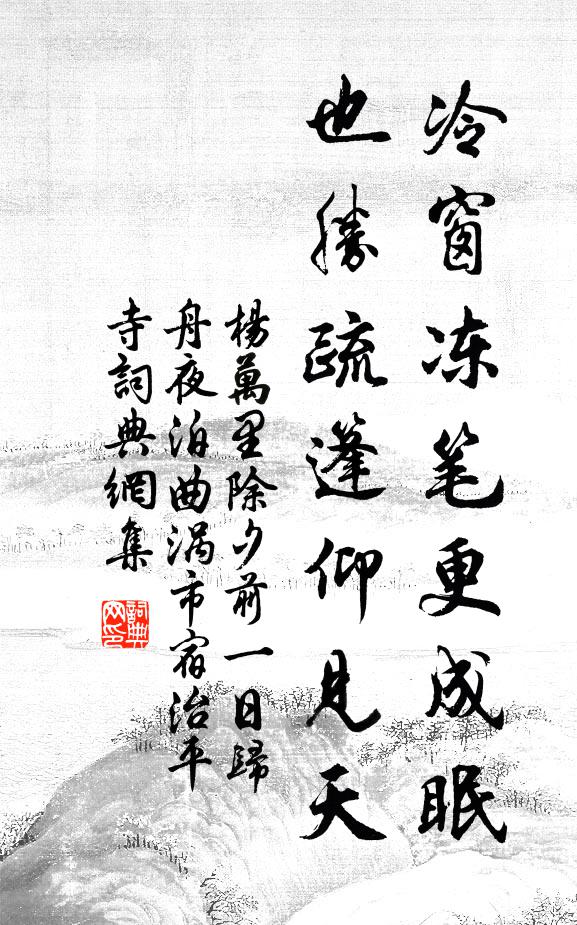 冷窗冻笔更成眠
也勝疏蓬仰見天
楊萬里除夕前一日歸
舟夜泊曲涡市宿治平
寺詞典網集
詞典
网印